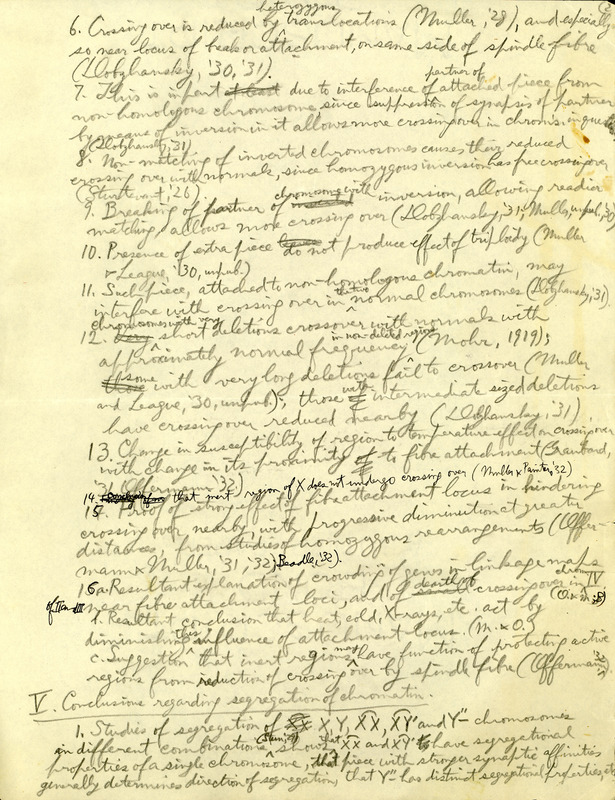 heterozygous
6. Crossing over is reduced by translocations (Muller, '28), and especially
so near locus of break or attachment, on same side of spindle fibre
(Dobzhansky, '30, '31).
partner of
7. This is in part due to interference of attached piece from
non-homologous chromosome, since suppression of synapsis of partner
by means of inversion in it allows more crossing over in chromos. in question
(Dobzhansky, '31)
8. Non-matching of inverted chromosomes causes their reduced
crossing over with normals, since homozygous inversion has free crossing over
(Sturtevant, '26)
chromosome with
9. Breaking of partner of inversion, allowing readier
matching, allows more crossing over (Dobzhansky, '31; Muller, unpub., '30)
10. Presence of extra piece do not produce effect of triploidy (Muller
& League, '30, unpub.)
11. Such piece, attached to non-homologous chromatin, may
the two
interfere with crossing over in normal chromosomes (Dobzhansky, '31)
chromosomes with very
12. short deletions crossover with normals with
in non-deleted region
approximately normal frequency (Mohr, 1919);
some with very long deletions fail to crossover (Muller
and League, '30, unpub.); those with intermediate sized deletions
have crossing over reduced nearby (Dobzhansky, '31)
13. Change in susceptibility of region to temperature effect on crossing over
with change in its proximity to fibre attachment (Graubard,
'31, Offermann, '32)
14. that inert region of X does not undergo crossing over (Muller & Painter, '32)
15. Proof of strong effect of fibre attachment locus in hindering
crossing over nearby, with progressive diminution at greater
distances, from studies of homozygous rearrangements (Offer-
mann & Muller, '31, '32; Beadle, '32).
16a. Resultant explanation of crowding of genes in linkage maps
near fibre attachment loci, and of crossing over in chrom. IV
of II and III
(O. & M., '32)
b. Resultant conclusion that heat, cold, X-rays, etc. act by
diminishing this influence of attachment locus. (M. & O.)
c. Suggestion that inert regions may have function of protecting active
regions from reduction of crossing over by spindle fibre (Offermann, '32)
V. Conclusions regarding segregation of chromatin.
1. Studies of segregation of XY, XX, XY' and Y" - chromosomes
in different combinations (Stern, '29) show that XX and XY' to have segregational
properties of a single chromosome, that piece with stronger synaptic affinities
generally determines direction of segregation, that Y" has distinct segregational properties, etc.